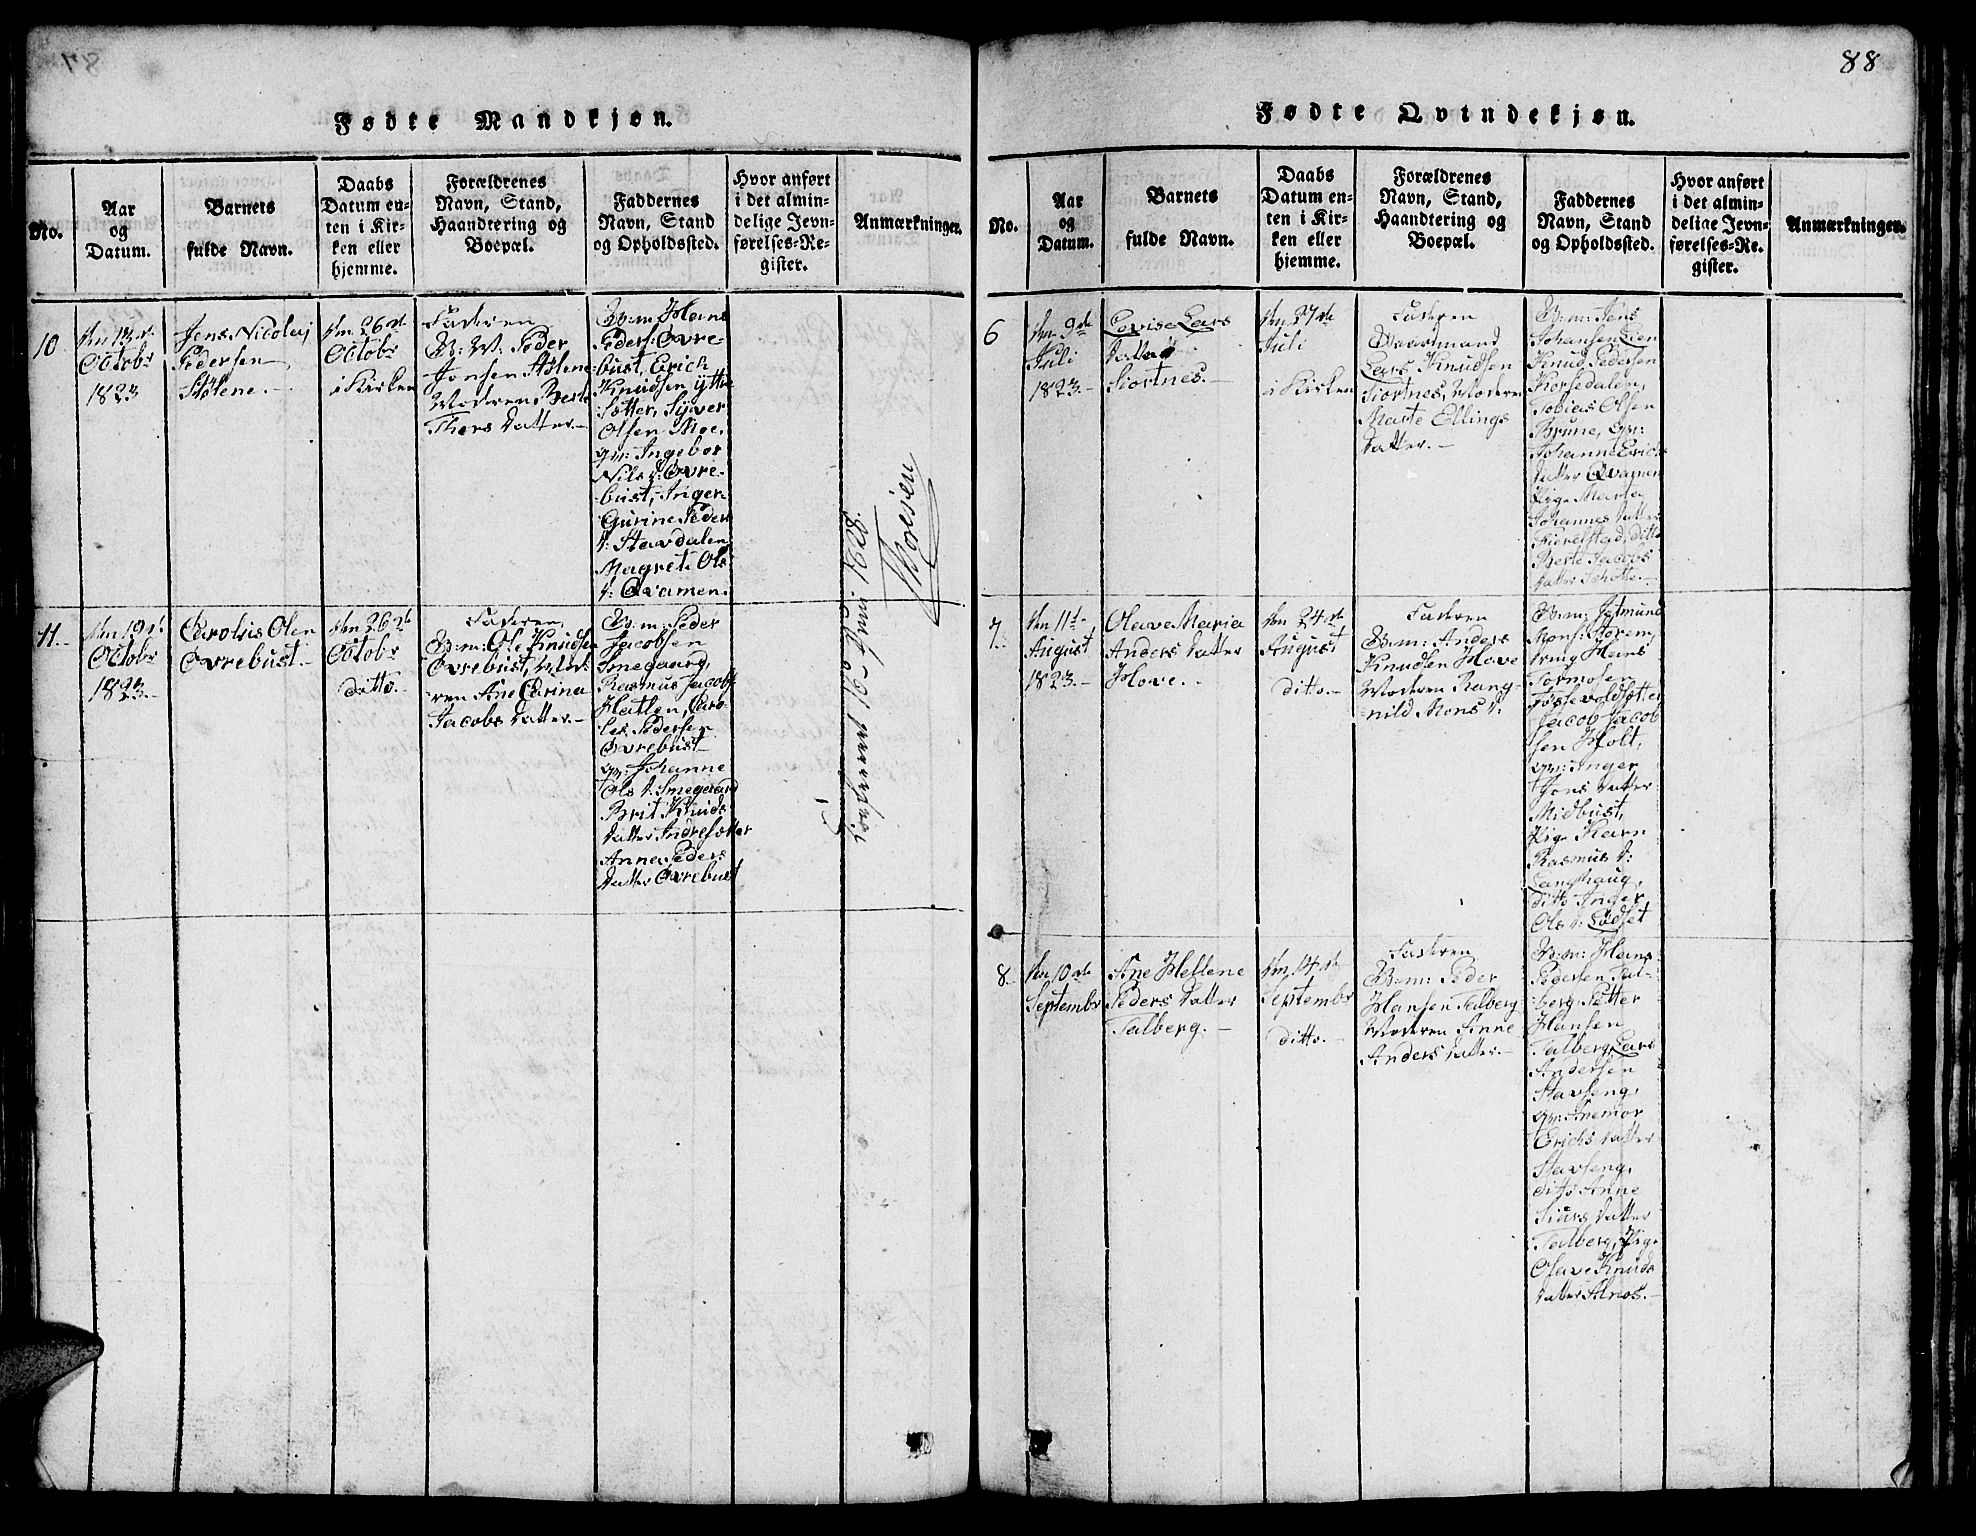 88
Fødte Mandkjøn.
No.
Aar
og
Datum.
Barnets
fulde Navn.
Daabs
Datum en-
ten i Kir-
ken eller
hjemme.
Forældrenes
Navn, Stand,
Haandtering og
Boepæl.
Faddernes
Navn, Stand
og Opholdssted.
Hvor anført
i det almin-
delige Jevn-
førelses-Re-
gister.
Anmærkninger.
10
den 13de
Octobr
1823
Jens Nicolaj
Pedersen
Stølene.
den 26de
Octobr
i Kirken
Faderen
B: M: Peder
Jonsen Stølene
Moderen Berte
Thors datter.
B: m: Hans
Peders: Øvre-
bust, Erich
Knudsen ÿttre
Søtter, Siver
Olsen Moe,
qv: Ingebor
Nils d: Øvre-
bust, Inger
Gurine Peders
d: Stavdalen
Magrete Ols
d: Qvamen.
11.
den 19de
Octobr
1823.
Carolus Olen
Øvrebust.
den 26de
Octobr
ditto.
Faderen,
B: m: Ole Knudsen
Øvrebust, Mode
ren Ane Carina
Jacobs datter.
B: m: Peder
Jacobsen
Smegaard,
Rasmus Jacobs
Hatlen, Caro-
les Pedersen
Øvrebust
qv: Johanne
Ols d: Smegaard
Brit Knuds
datter Indresøtter
Anna Peders
datter Øvrebust
1828.
Thoresen
Fødte Qvindekjøn.
No.
Aar
og
Datum.
Barnets
fulde Navn.
Daabs
Datum en-
ten i Kir-
ken eller
hjemme.
Forældrenes
Navn, Stand,
Haandtering og
Boepæl.
Faddernes
Navn, Stand
og Opholdssted.
Hvor anført
i det almin-
delige Jevn-
førelses-Re-
gister.
Anmærkninger.
6
den 9de
Juli
1823.
Lovise Lars
datter
Siortnes.
den 27de
Juli
i Kirken
Faderen
Lars Knudsen
Siortnes, Moderen
Marte Ellings
datter.
B: m: Jens
Johansen Lien
Knud Pedersen
Korsedalen,
Tobias Olsen
Brune, qv:
Johanne Erichs
datter Qvamen
Pige Maria
Johannes datter
Fierelstad, ditto
Berte Jacobs
datter Schotte.
7.
den 11te
August
1823.
Olave Maria
Anders datter
Hove.
den 24de
August
ditto.
Faderen
B: m: Anders
Knudsen Hove
Moderen Rang-
nild Mons d:
B: m: Istmund
Mons: Morem,
dreng Hans
Tormosen
Jøstevoldsøtter
Jacob Jacob
sen Holt,
qv: Inger
Jons datter
Midbust,
Pige Karn
Rasmus d:
Langhaug,
ditto Inger
Ols d: Lødset
8.
den 10de
Septembr
Ane Hellene
Peders datter
Talberg.
den 14de
Septembr
ditto.
Faderen
B: m: Peder
Hansen Talberg
Moderen Anne
Anders datter.
B: m: Hans
Pedersen Tal-
berg: Petter
Hansen
Talberg, Lars
Andersen
Stavseng,
qv: Anemor
Erichs datter
Stavseng,
ditto Anne
Siurs datter
Talberg, Pige
Olave Knuds
datter Alnos.